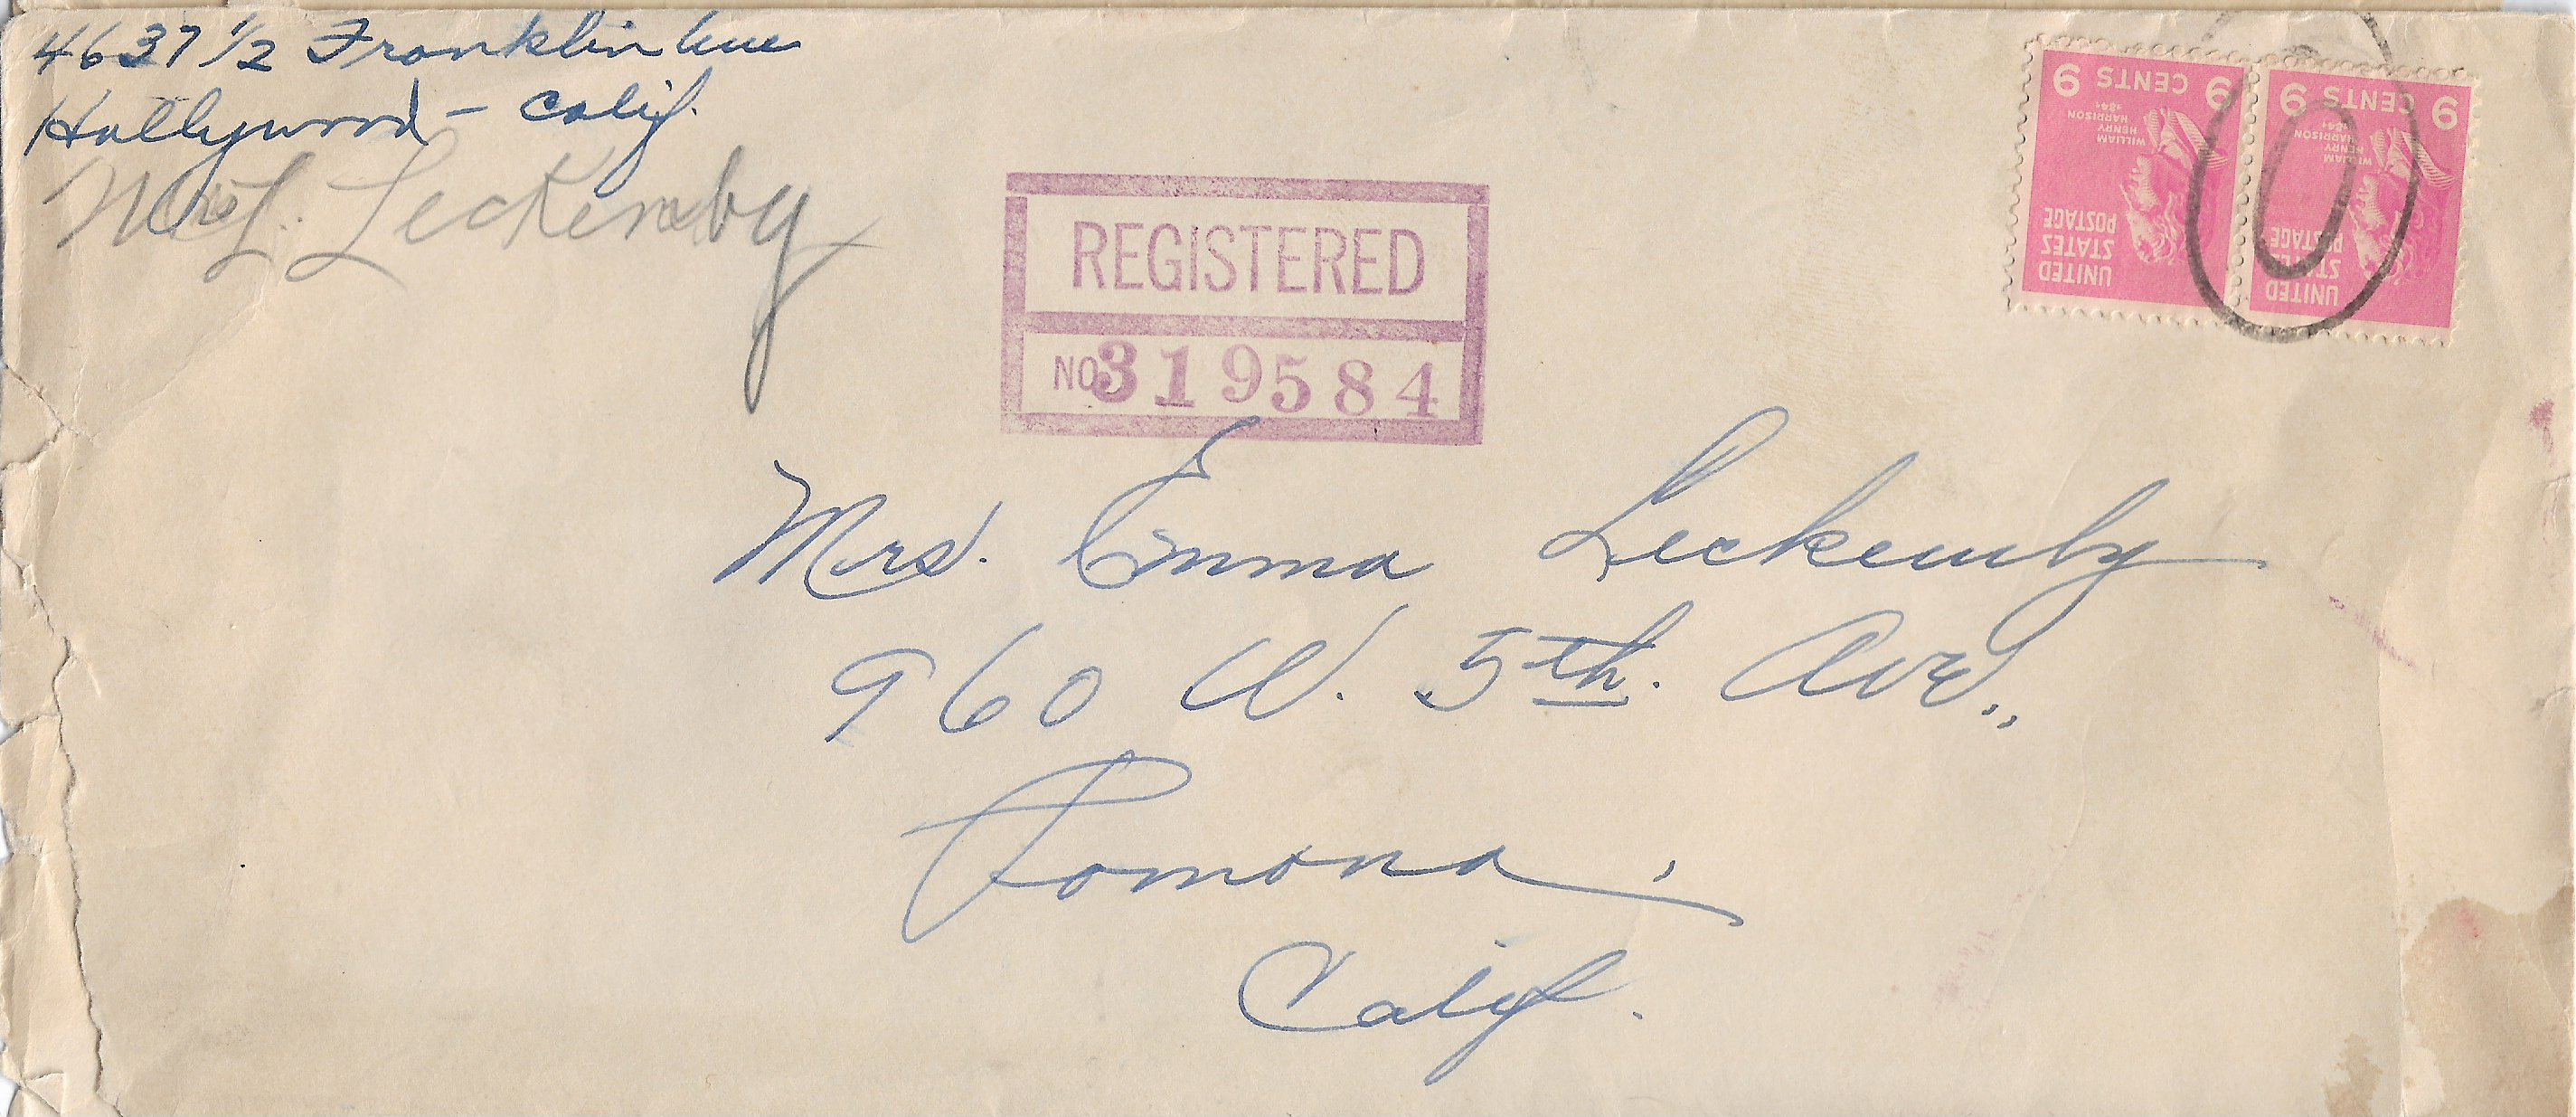 4637 1/2 Franklin Ave
Hollywood - Calif.
Mrs L. Leckemby
REGISTERED
NO 319584
9 CENTS 9
WILLIAM
HENRY
HARRISON
1841
UNITED
STATES
POSTAGE
9 CENTS 9
WILLIAM
HENRY
HARRISON
1841
UNITED
STATES
POSTAGE
Mrs. Emma Leckemby
960 W. 5th. Ave.,
Pomona,
Calif.